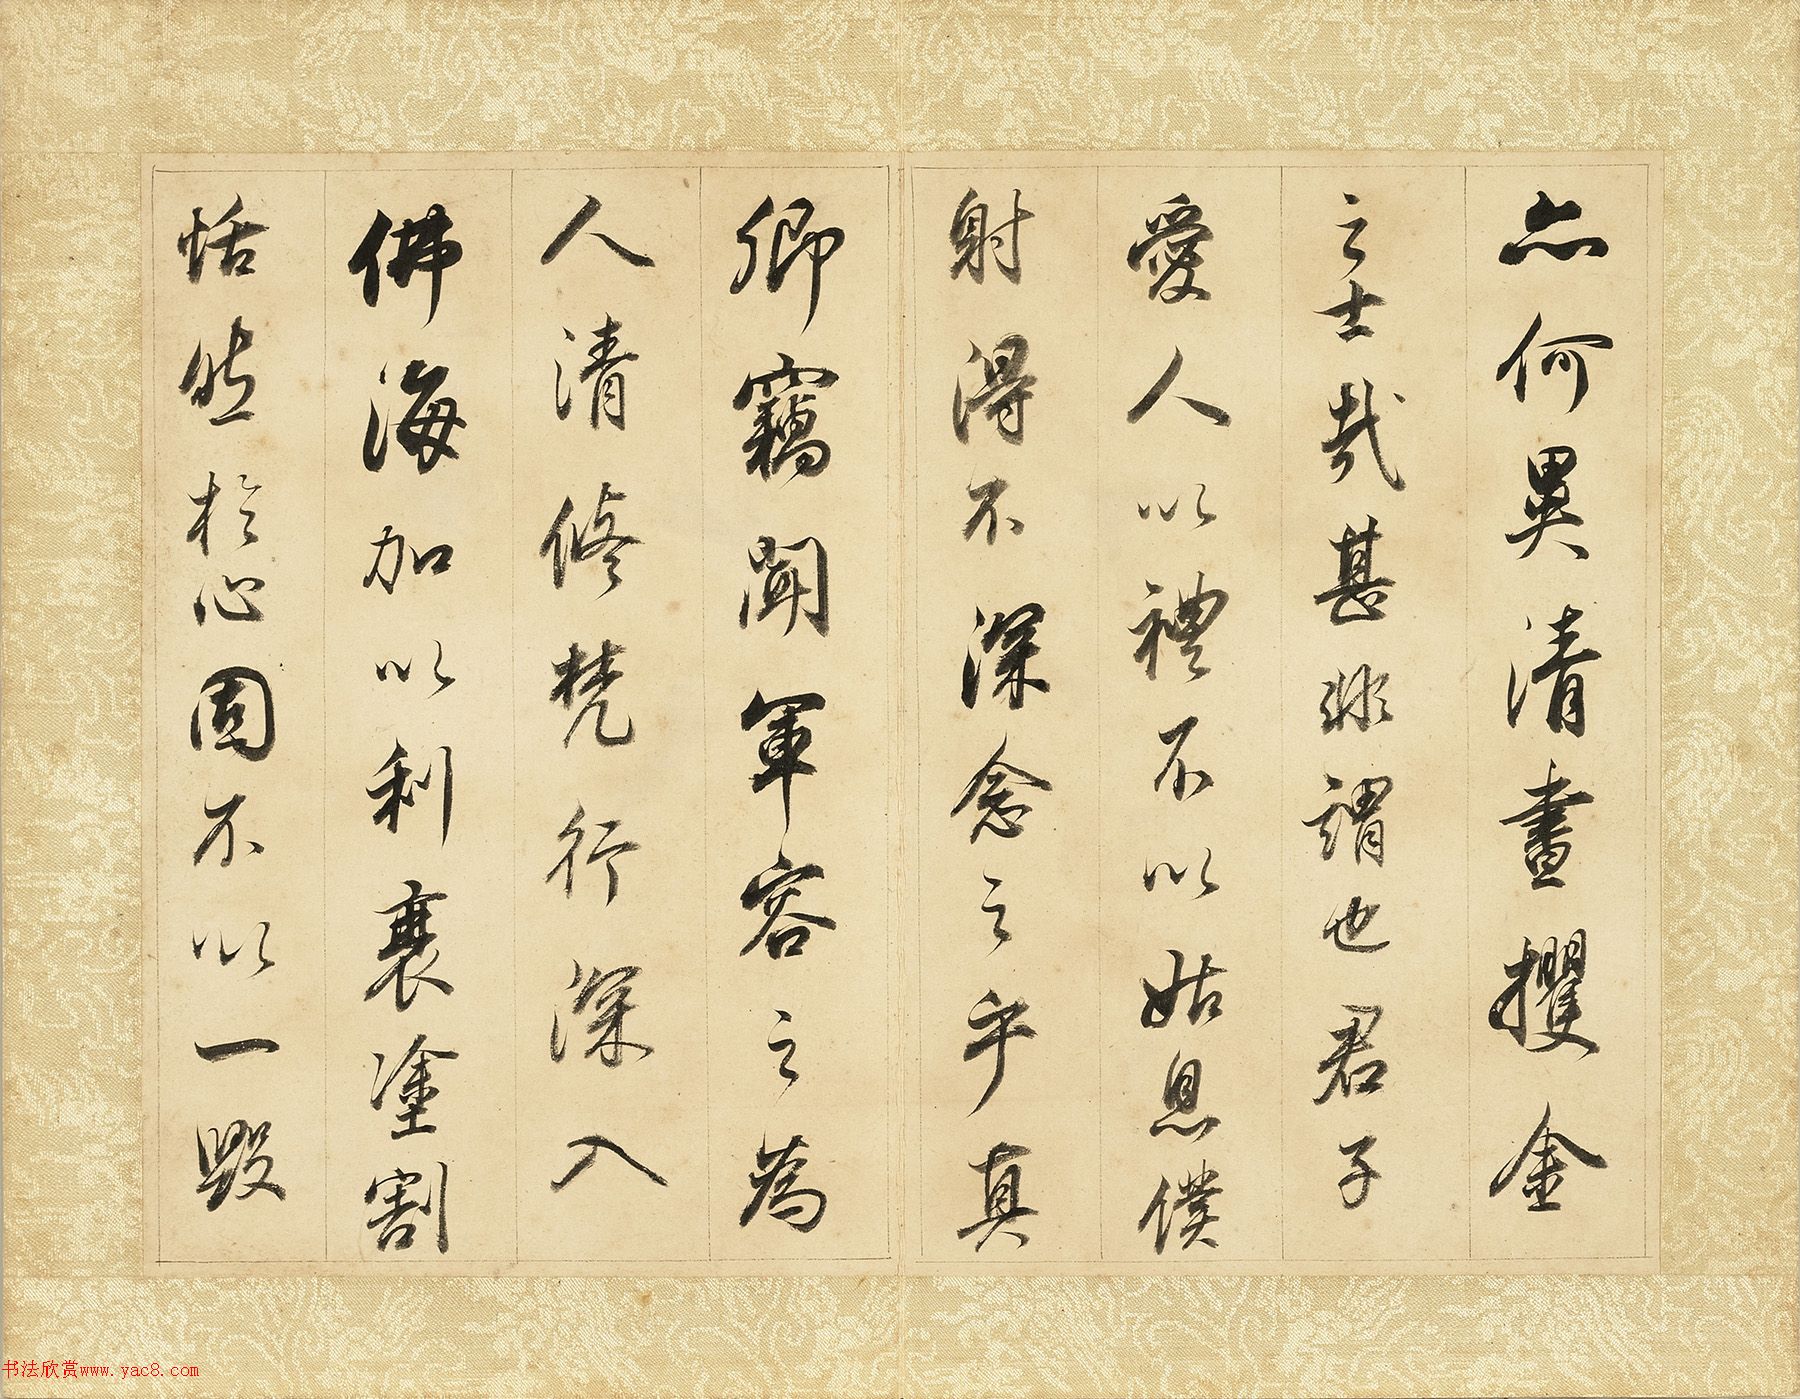 亦何異清晝攫金
之士哉甚非謂也君子
愛人以禮不以姑息僕
射得不深念之乎真
卿竊聞軍容之為
人清修梵行深入
佛海加以利衰塗割
恬然於心固不以一毀
书法欣赏www.yac8.com